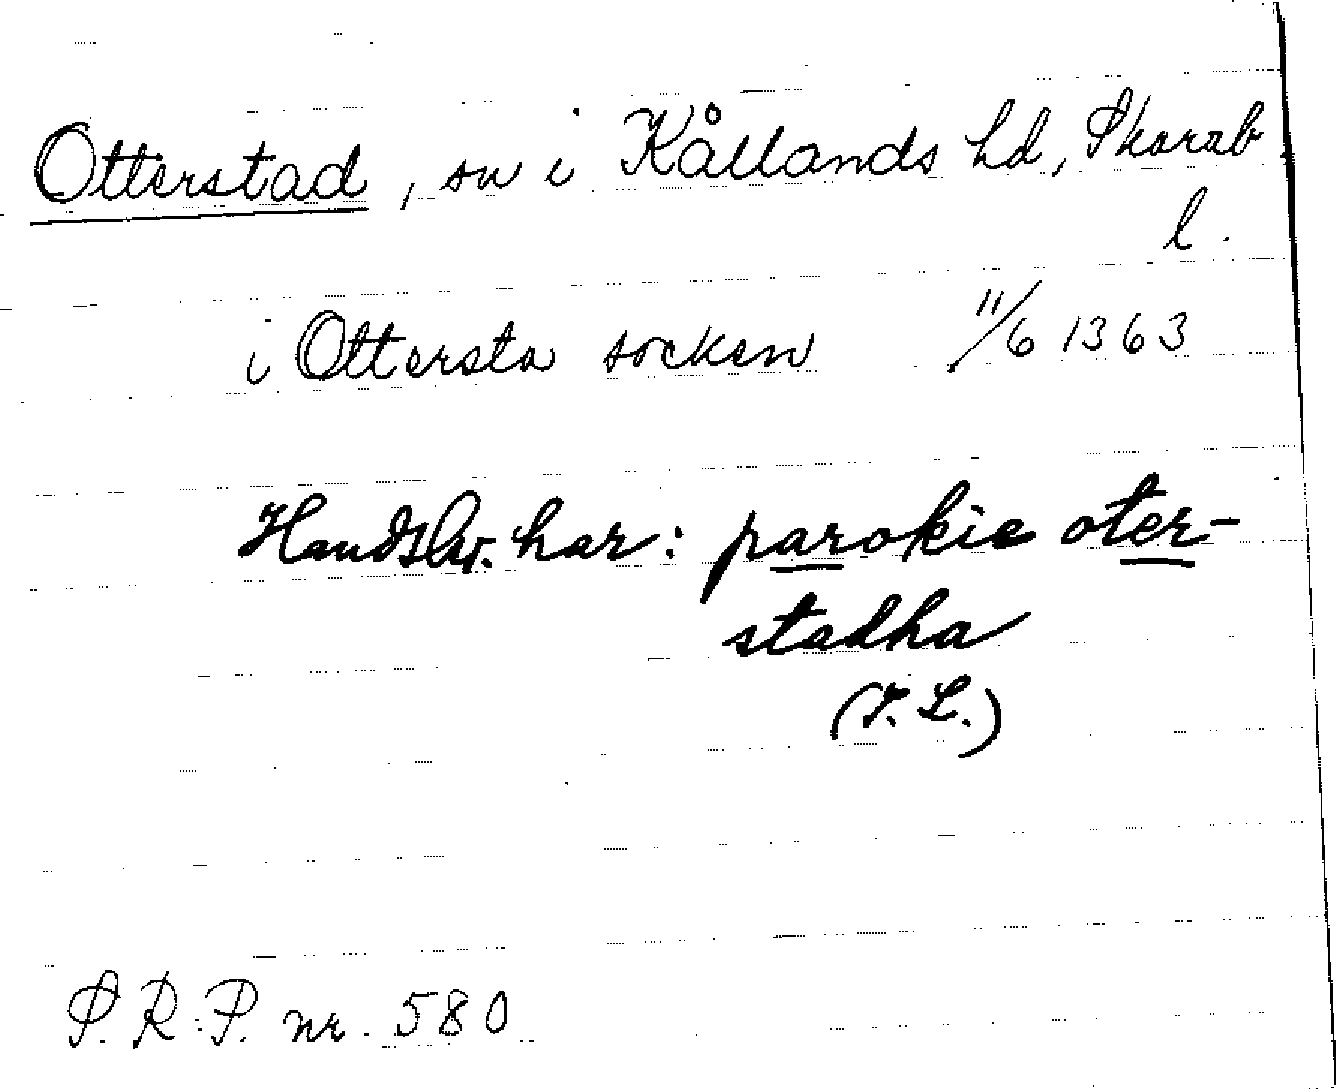 Otterstad, sn i Kållands hd, Skarab.
l.
i Ottersta socken 11/6 1363
Handskr. har: parokie oter-
stadha
(I. L.)
S. R. P. nr. 580